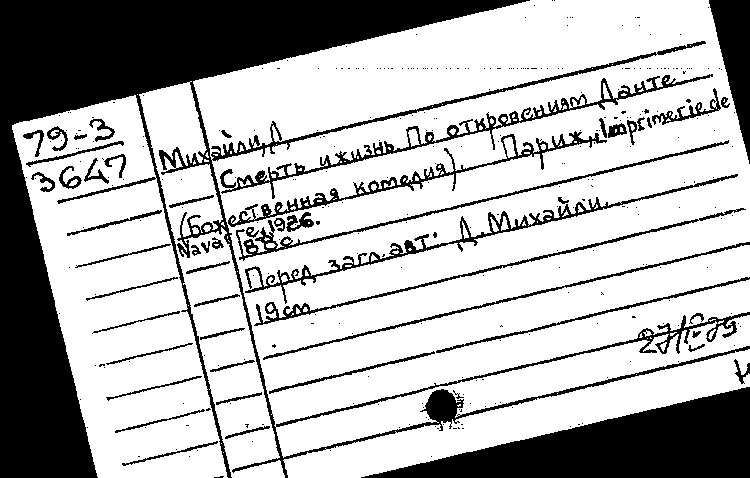 79-3
3647
Михайли, Д.
Смерть и жизнь. По откровениям Данте
(Божественная комедия). Париж, "Imprimerie de
Navarre", 1926.
188 с.
Перед загл. авт: Д. Михайли.
19 cm